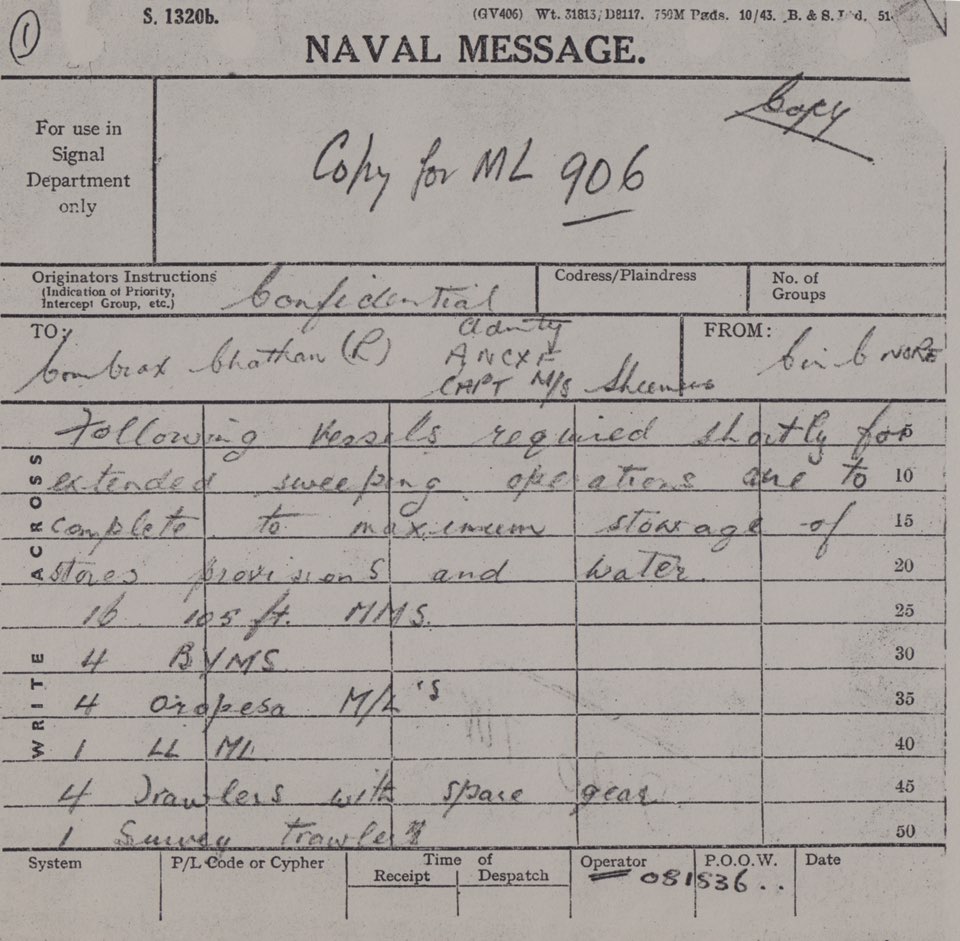 1
S. 1320b.
(GV406) Wt. 31813/D8117. 750M Pads. 10/43. B. & S. Ltd. 51-
NAVAL MESSAGE.
For use in
Signal
Department
only
Copy
Copy for ML 906
Originators Instructions
(Indication of Priority,
Intercept Group, etc.)
Confidential
Codress/Plaindress
No. of
Groups
TO:
(R)
ANCXF
CAPT M/S Sheerness
FROM:
C in C NORE
WRITE ACROSS
Following vessels required shortly for 5
extended sweeping operations are to 10
complete to maximum stowage of 15
stores provisions and water. 20
16 105 ft. MMS. 25
4 BYMS 30
4 Oropesa M/L'S 35
1 LL ML 40
4 Trawlers with spare gear 45
1 Survey trawler 50
System
P/L Code or Cypher
Time of
Receipt Despatch
Operator
P.O.O.W.
Date
081836..